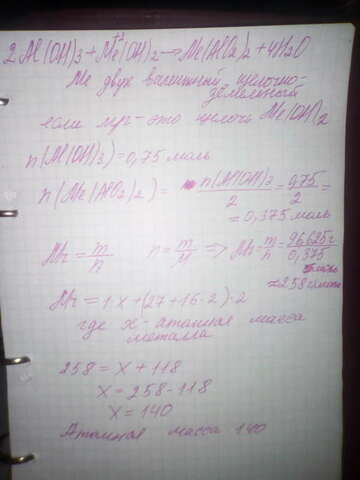 2Al(OH)3 + Me(OH)2 → Me(AlO2)2 + 4H2O
Me двух валентный, щелочно-
земельный
если Me - это щелочь Me(OH)2
n(Al(OH)3) = 0,75 моль
n(Me(AlO2)2) = n(Al(OH)3 / 2 = 0,75 / 2 =
= 0,375 моль
Mr = m/n n = m/M ⇒ M = m/n = 96,625г / 0,375 моль
≈ 258 г/моль
Mr = 1·x + (27 + 16·2)·2
где x - атомная масса
металла
258 = x + 118
x = 258 - 118
x = 140
Атомная масса 140